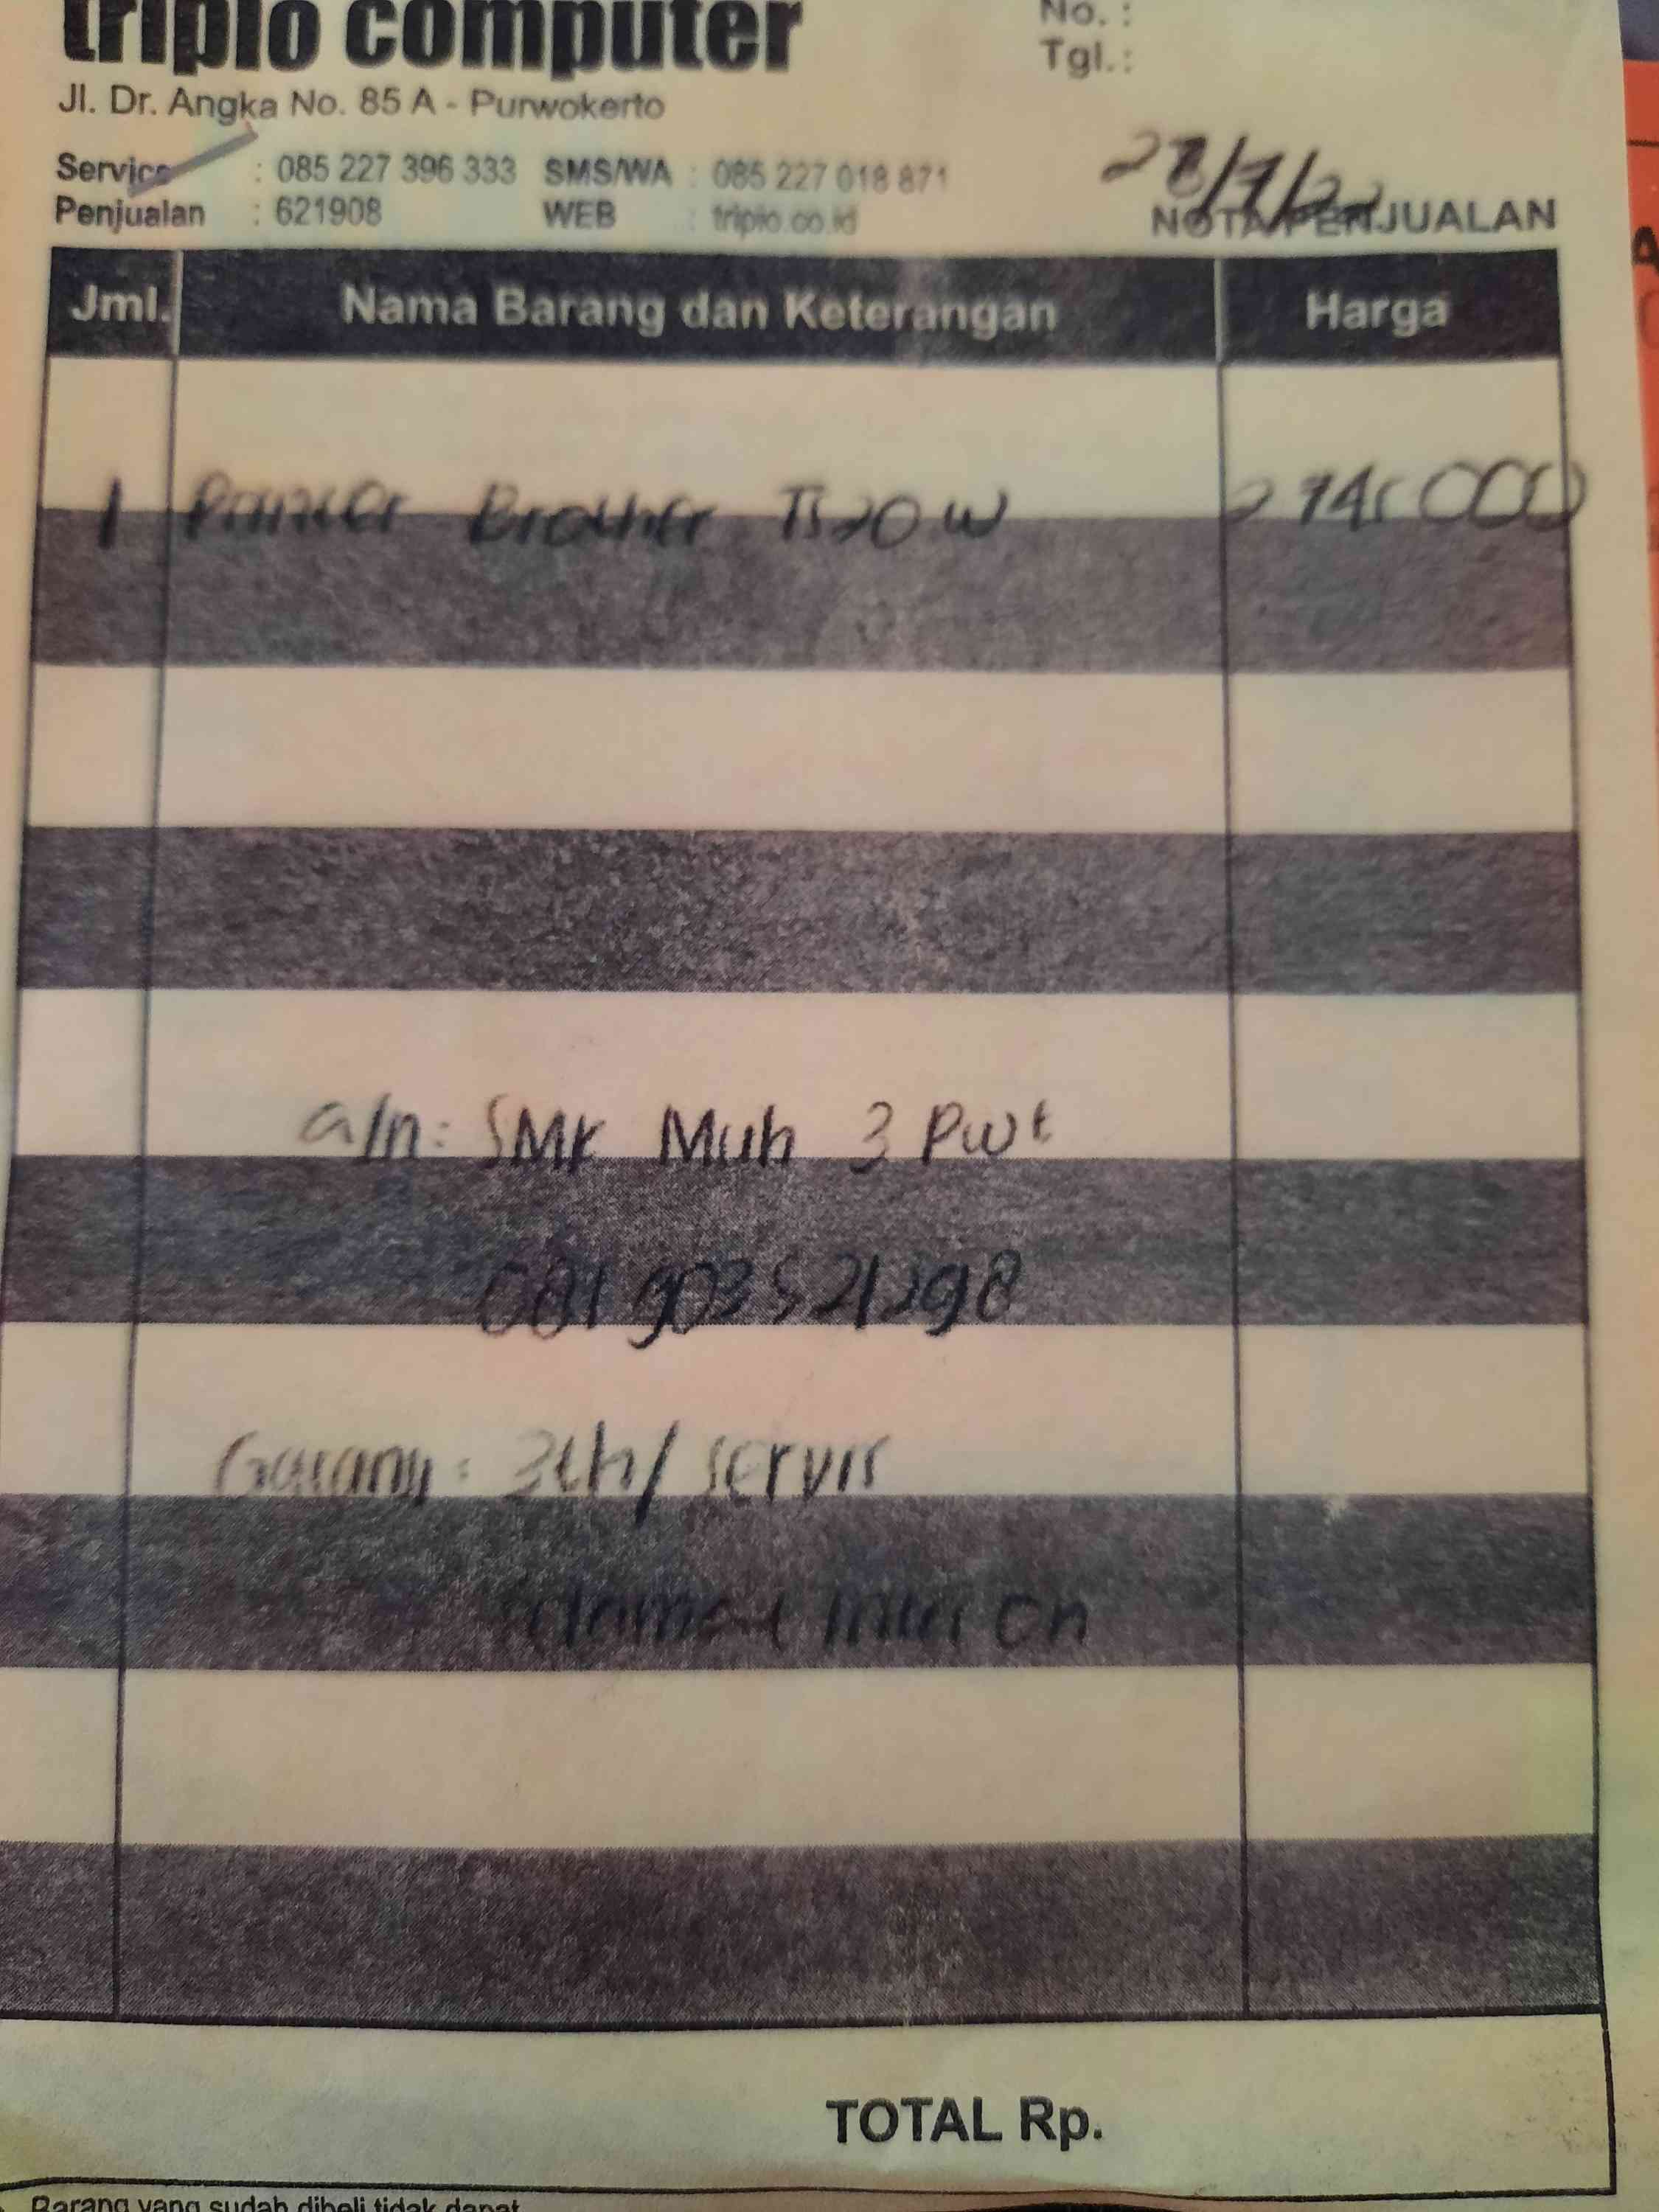 triplo computer
No. :
Tgl. :
Jl. Dr. Angka No. 85 A - Purwokerto
Service : 085 227 396 333 SMS/WA : 085 227 018 871
Penjualan : 621908 WEB : triplo.co.id
28/7/22
NOTA PENJUALAN
Jml. Nama Barang dan Keterangan Harga
1 Printer Brother T520W 2745000
a/n: SMK Muh 3 Pwt
Garansi : 3th/ servis
TOTAL Rp.
Barang yang sudah dibeli tidak dapat